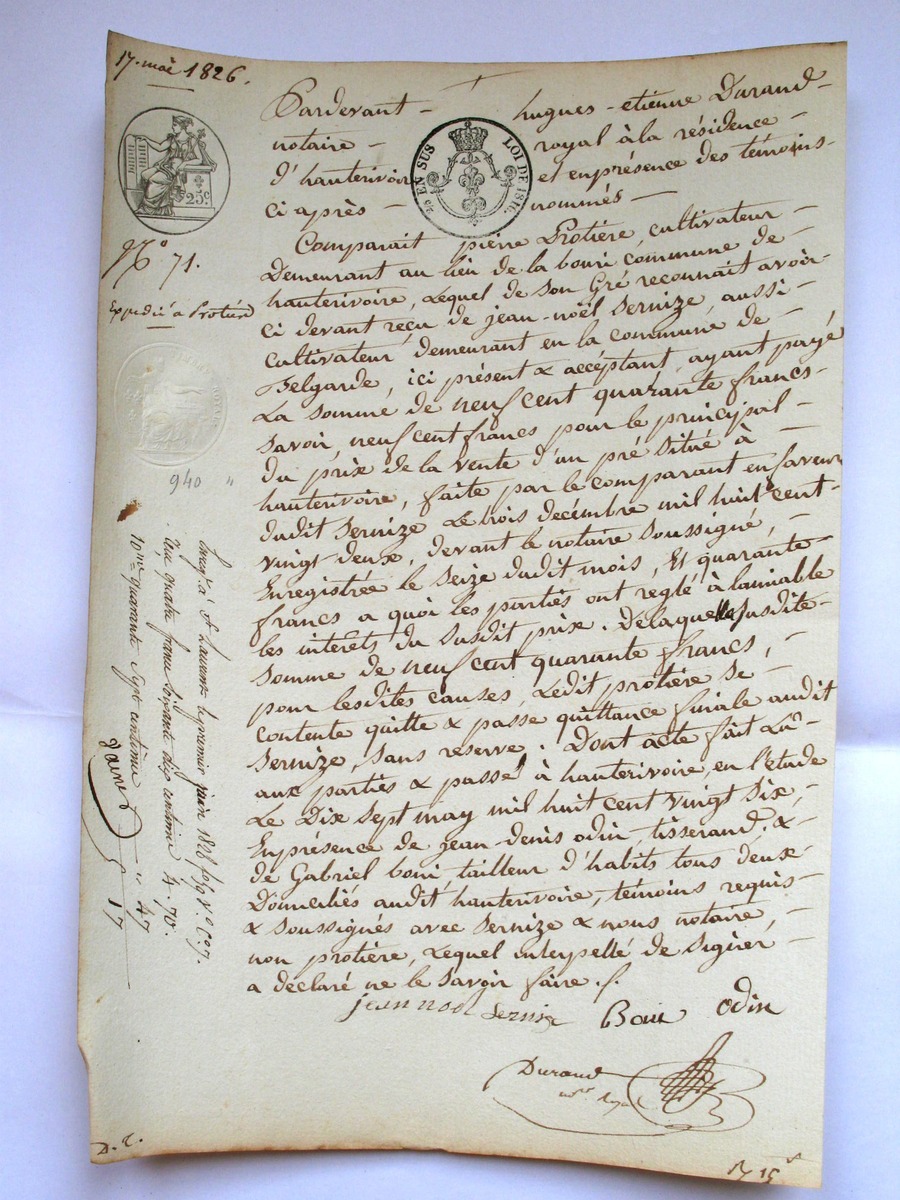 17. mai 1826.
Pardevant – hugues-etienne Durand –
notaire – royal à la résidence –
d'hauterivoire et en présence des témoins –
ci après – nommés –
25 EN SUS LOI DE 1816.
25c
N.º 71.
Expedié à Protière
Comparait pierre Protière, cultivateur –
Demeurant au lieu de la bouri commune de –
hauterivoire, Lequel de son Gré reconnait avoir
ci devant reçu de jean-noël Sernize, aussi –
cultivateur demeurant en la commune de –
Belgarde, ici présent & acceptant, ayant payé
La somme de neuf cent quarante francs –
savoir, neuf cent francs pour le principal –
du prix de la vente d'un pré situé à –
hauterivoire, faite par le comparant en faveur
dudit Sernize Le trois décembre mil huit cent –
vingt deux, devant le notaire soussigné, –
Enregistrée le Seize dudit mois, Et quarante –
francs a quoi les parties ont reglé à lamiable
les intérets du susdit prix. De laquelle susdite –
somme de neuf cent quarante francs, –
pour lesdites causes, Ledit protière se –
contente quitte & passe quittance finale audit
Sernize, sans reserve. Dont acte fait Lû –
aux parties & passé à hauterivoire, en l'étude
Le Dix Sept may mil huit cent vingt six, –
En présence de jean-denis odin, tisserand, & –
de Gabriel boni tailleur d'habits tous deux –
Domiciliés audit hauterivoire, témoins requis –
& soussignés avec Sernize & nous notaire, –
non protière, Lequel interpellé de signer –
a déclaré ne le savoir faire.
jean noel Sernize Boni Odin
Durand
nre royal
940 "
Enreg. à St Laurent le premier juin 1826 fo 19 Vo Co 7.
reçu quatre francs soixante dix centimes 4.70.
10me quarante sept centimes " 47
5 17
D. T.
15